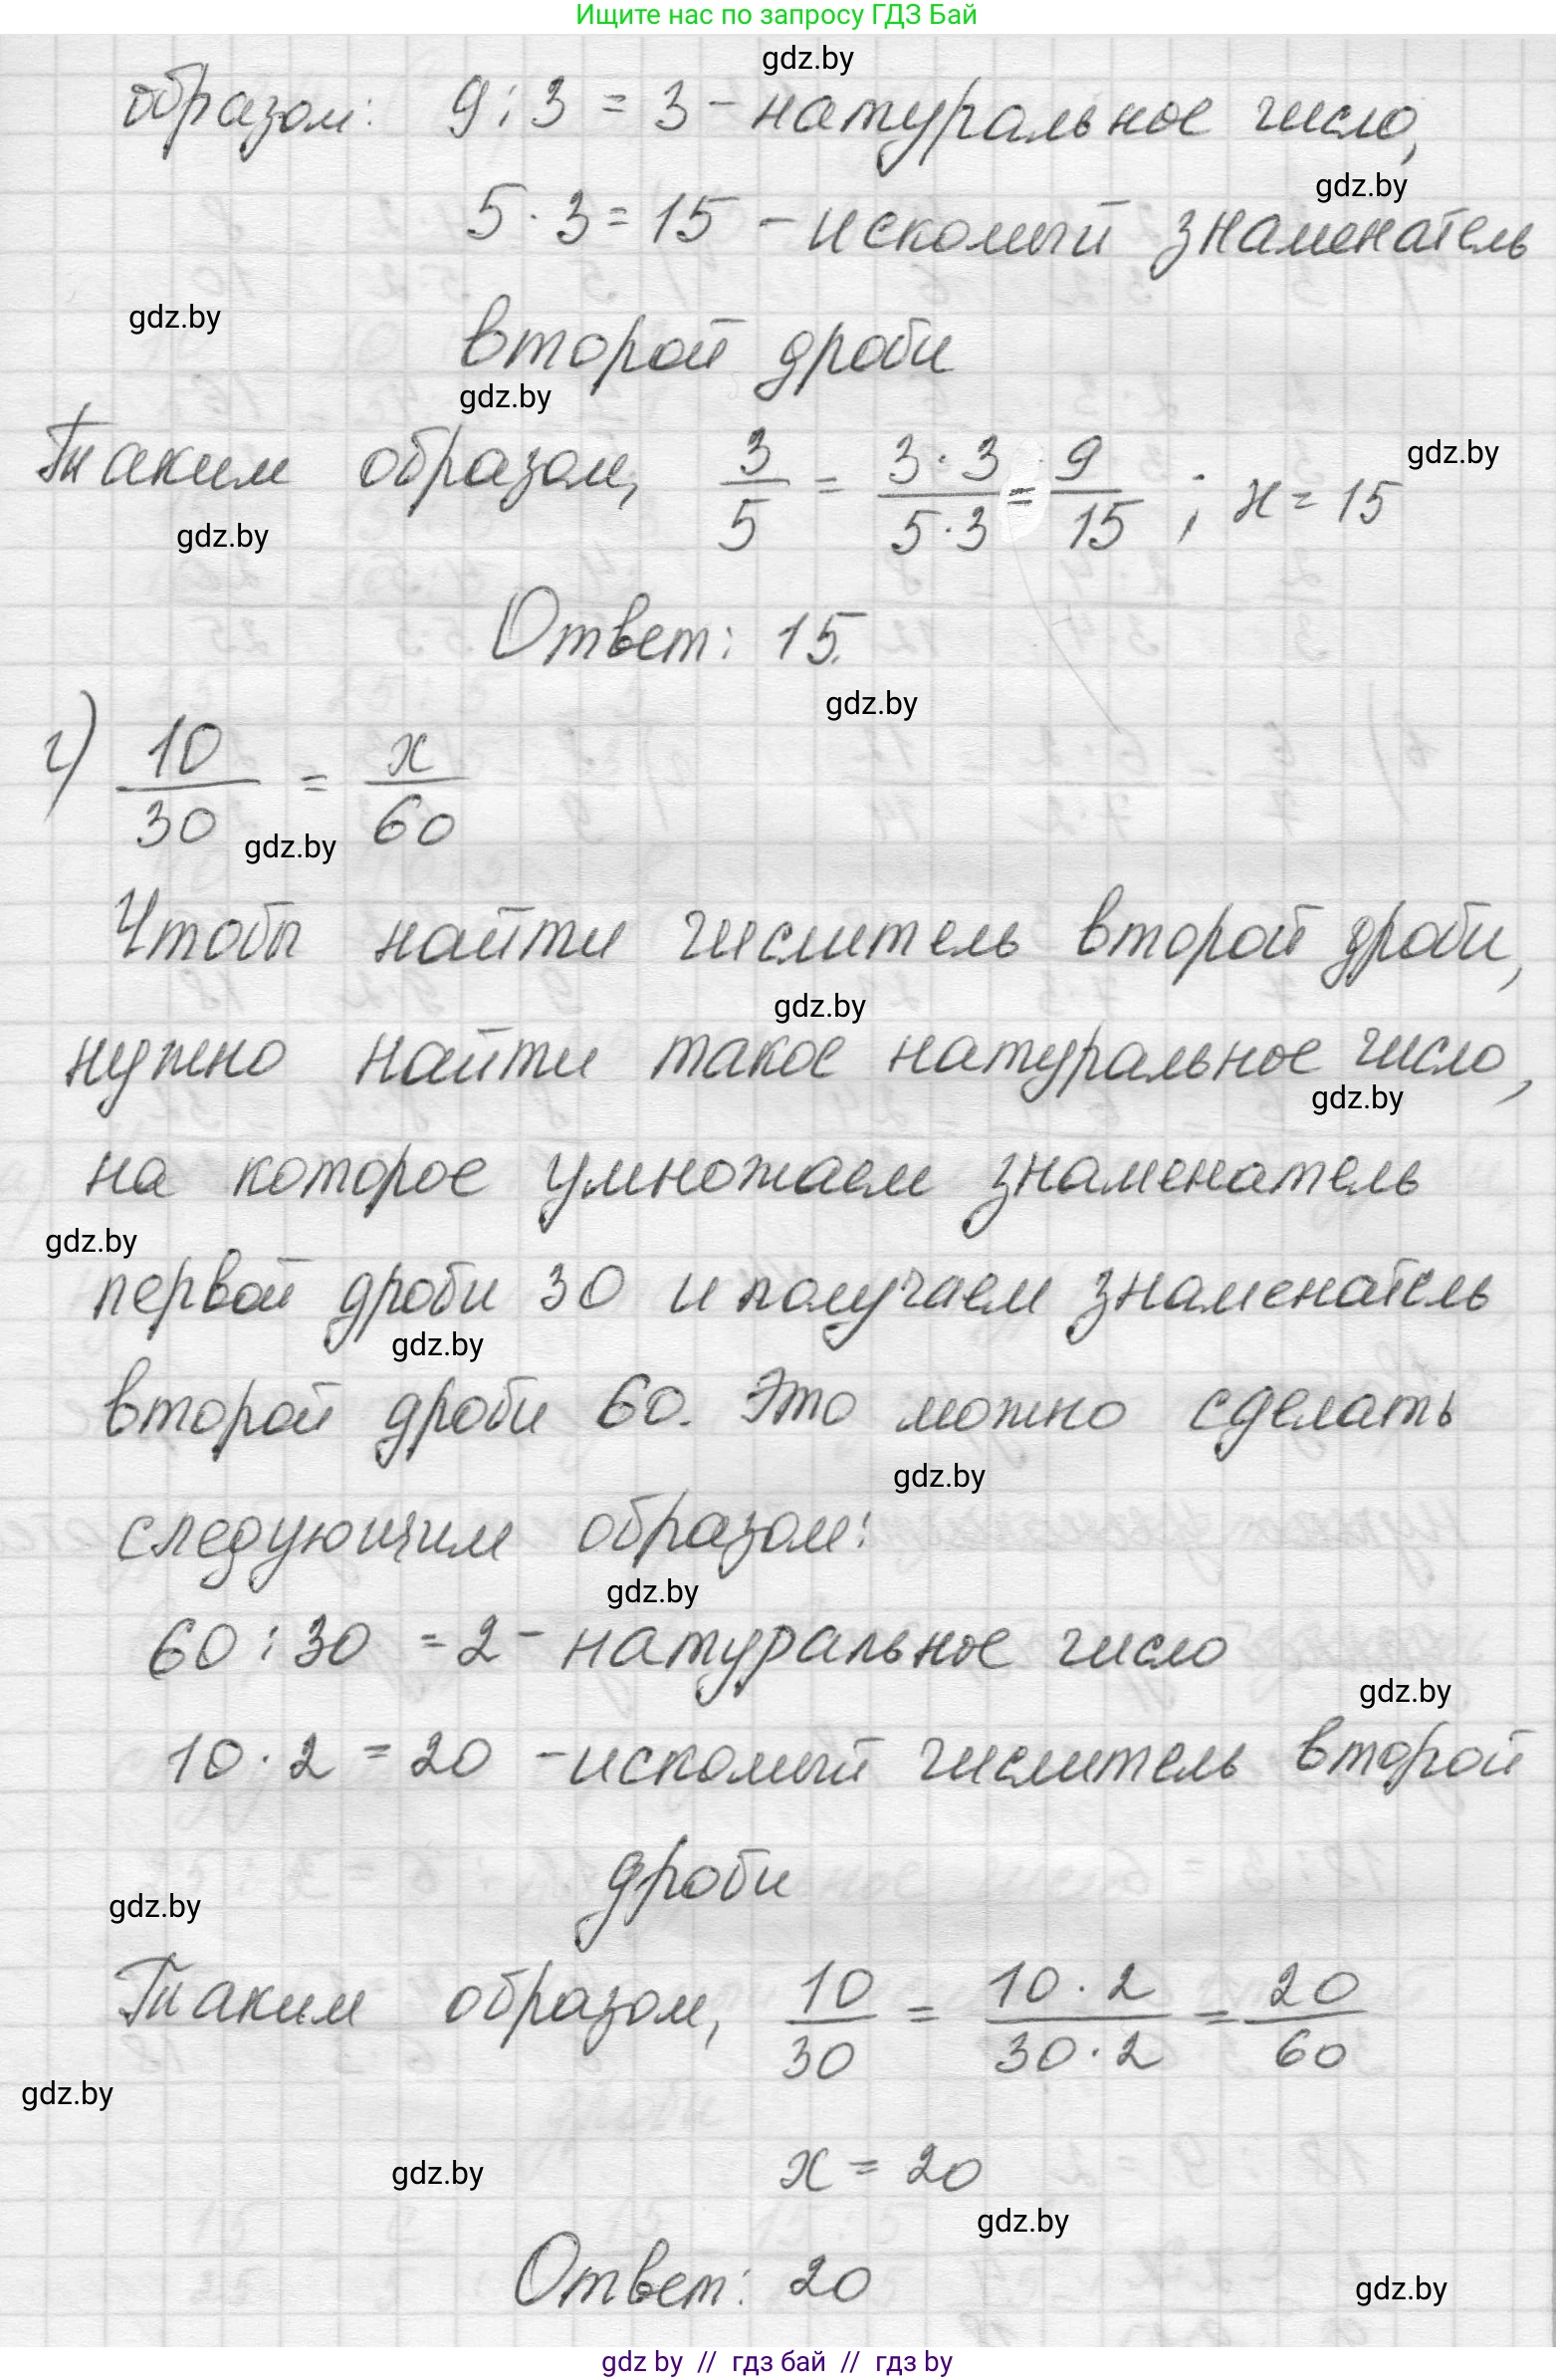 Ищите нас по запросу ГДЗ Бай
gdz.by
образом: 9 : 3 = 3 - натуральное число,
gdz.by
5 · 3 = 15 - искомый знаменатель
gdz.by
второй дроби
gdz.by
Таким образом, 3/5 = 3·3/5·3 = 9/15 ; x = 15
gdz.by
gdz.by
Ответ: 15.
gdz.by
г) 10/30 = x/60
gdz.by
Чтобы найти числитель второй дроби,
gdz.by
нужно найти такое натуральное число,
gdz.by
на которое умножаем знаменатель
gdz.by
первой дроби 30 и получаем знаменатель
gdz.by
второй дроби 60. Это можно сделать
gdz.by
следующим образом:
gdz.by
60 : 30 = 2 - натуральное число
gdz.by
10 · 2 = 20 - искомый числитель второй
дроби
gdz.by
Таким образом, 10/30 = 10·2/30·2 = 20/60
gdz.by
x = 20
gdz.by
gdz.by
Ответ: 20
gdz.by
gdz by // гдз бай // гдз by